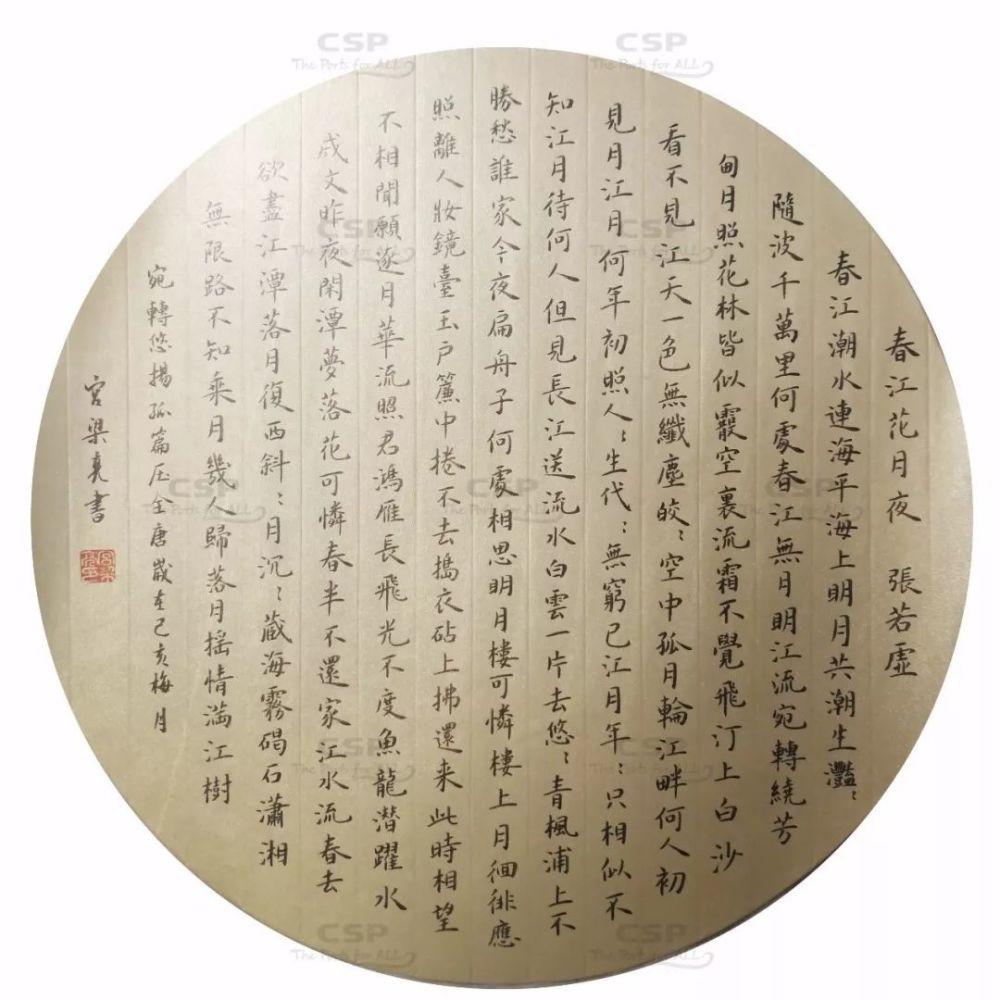 春江花月夜 張若虛
春江潮水連海平海上明月共潮生灩:
隨波千萬里何處春江無月明江流宛轉繞芳
甸月照花林皆似霰空裏流霜不覺飛汀上白沙
看不見江天一色無纖塵皎:空中孤月輪江畔何人初
見月江月何年初照人:生代:無窮已江月年:只相似不
知江月待何人但見長江送流水白雲一片去悠:青楓浦上不
勝愁誰家今夜扁舟子何處相思明月樓可憐樓上月徊徘應
照離人妝鏡臺玉戶簾中捲不去搗衣砧上拂還来此時相望
不相聞願逐月華流照君鴻雁長飛光不度魚龍潛躍水
成文昨夜閑潭夢落花可憐春半不還家江水流春去
欲盡江潭落月復西斜:月沉:藏海霧碣石瀟湘
無限路不知乘月幾人歸落月搖情滿江樹
宛轉悠揚孤篇压全唐嵗在己亥梅月
宮書
CSP
The Ports for ALL